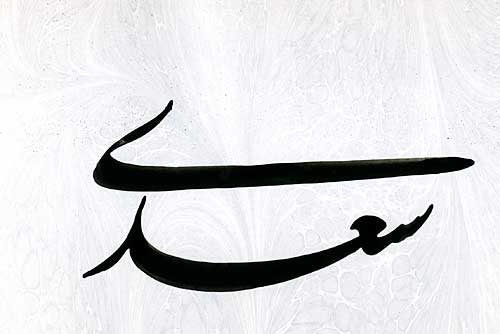 سعدی